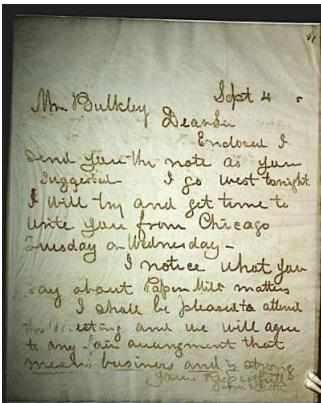 Sept 4
Mr Bulkley
Dear Sir
Enclosed I
send you the note as you
suggested I go West tonight
I will try and get time to
write you from Chicago
Tuesday or Wednesday -
I notice what you
say about Paper Mill matters
I shall be pleased to attend
the Meeting and we will agree
to any fair arrangment that
means business and is strong
Yours Respectfully